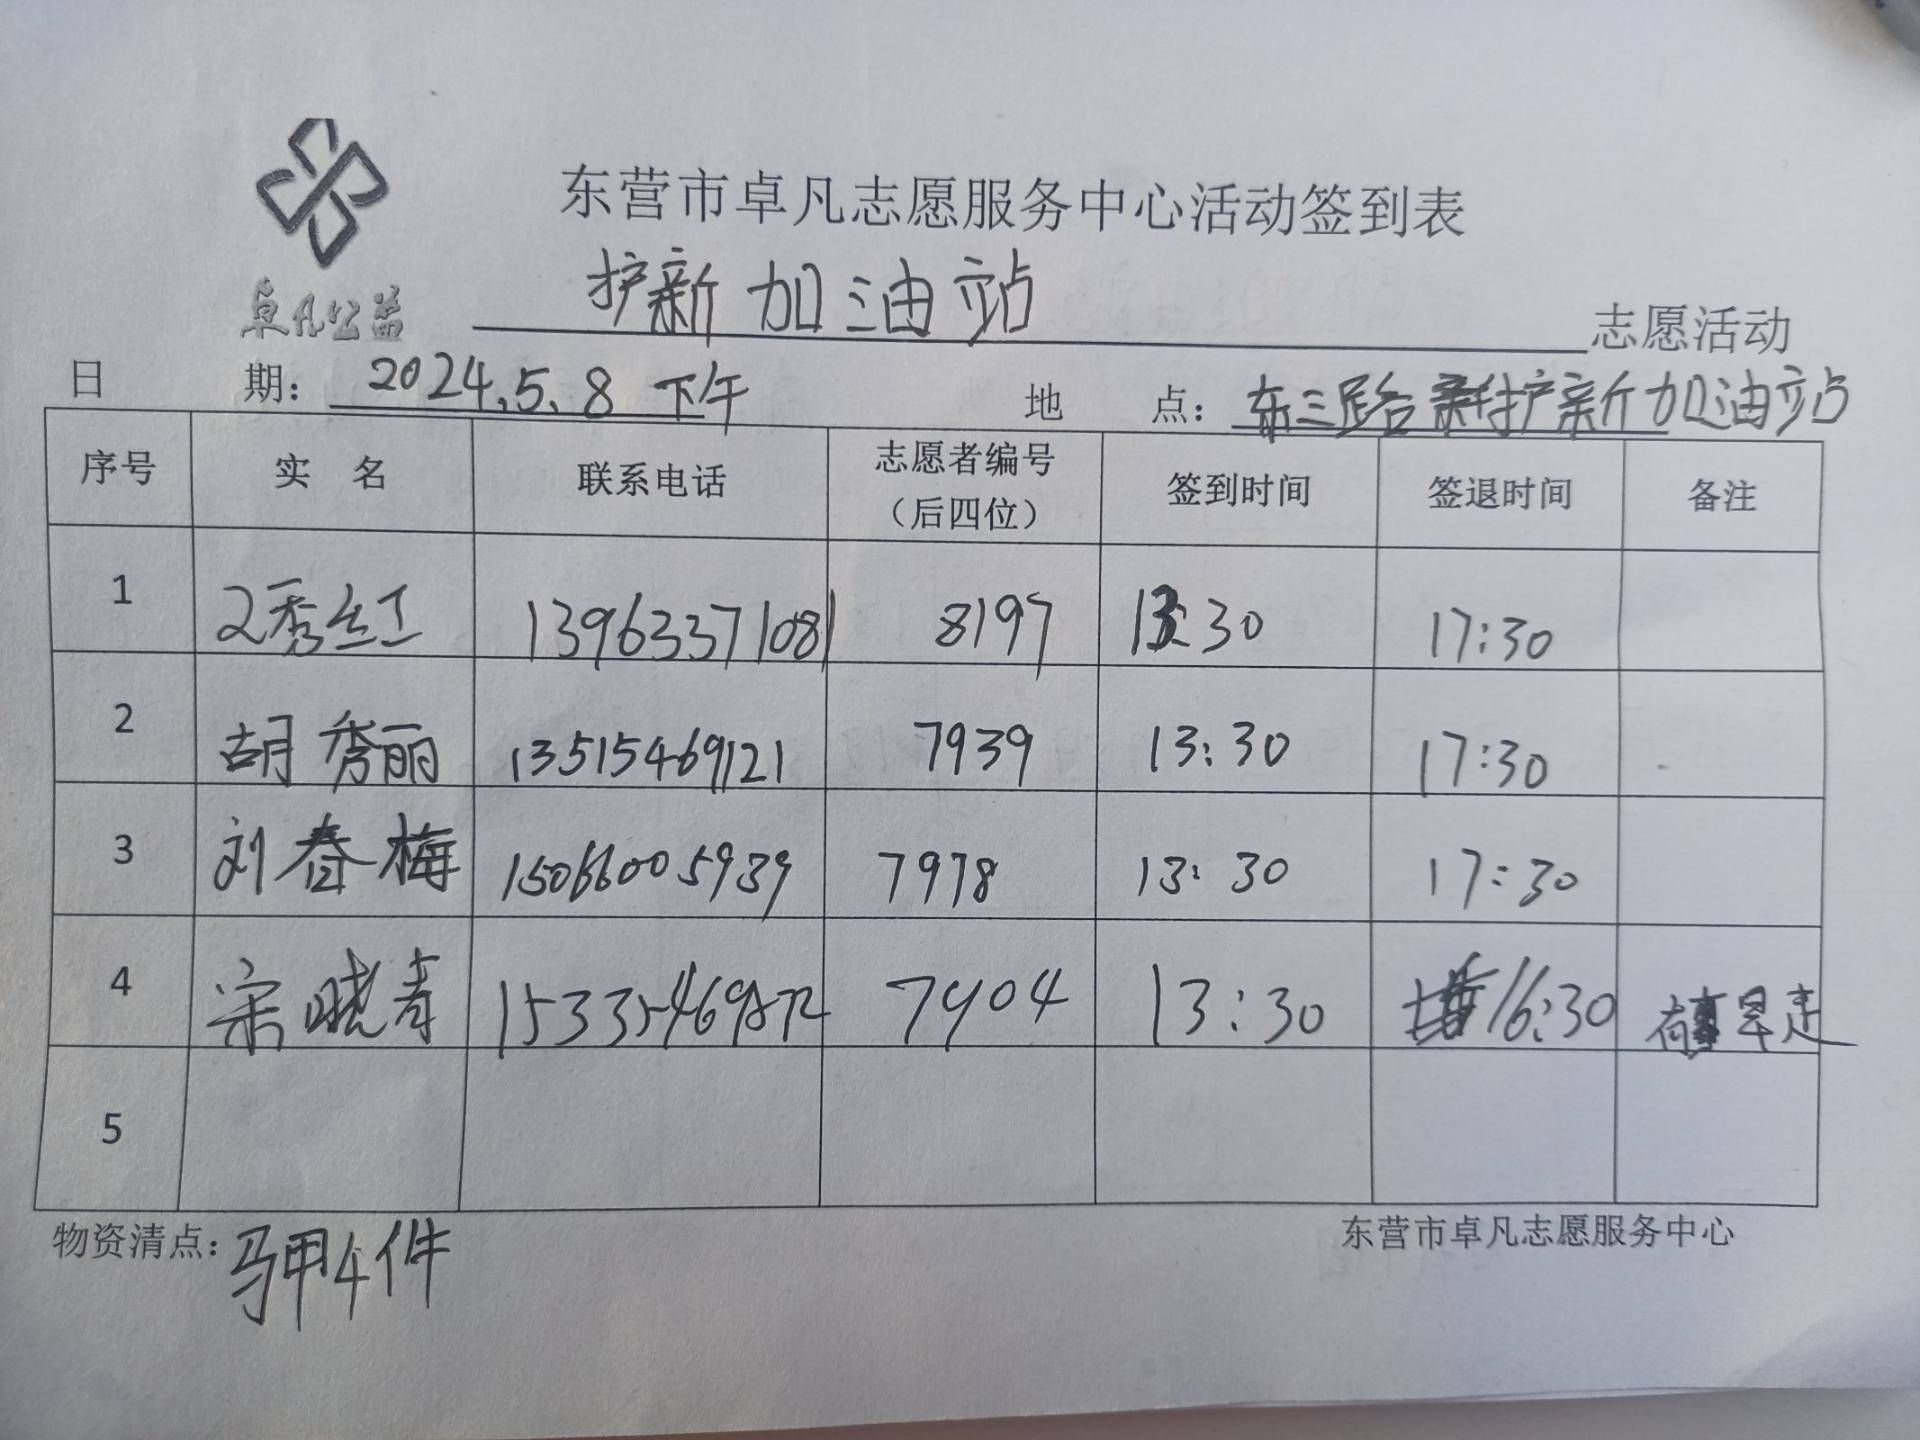 东营市卓凡志愿服务中心活动签到表
卓凡公益
护新加油站 志愿活动
日 期: 2024.5.8 下午 地 点: 东三路护新加油站
序号 实 名 联系电话 志愿者编号（后四位） 签到时间 签退时间 备注
1 秀红 13963371081 8197 13:30 17:30
2 胡秀丽 13515469121 7939 13:30 17:30
3 刘春梅 15066005939 7978 13:30 17:30
4 宋晓青 7904 13:30 16:30 有事早走
5
物资清点: 马甲4件 东营市卓凡志愿服务中心